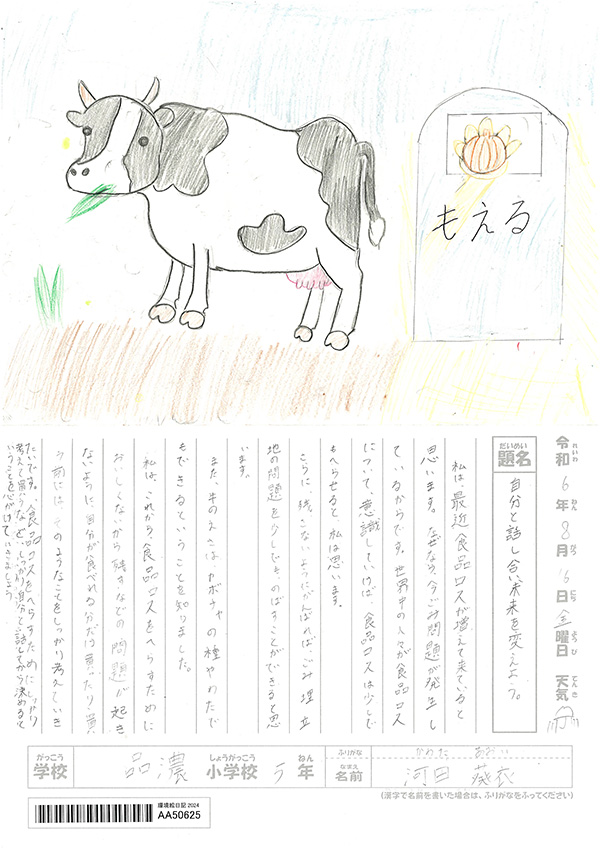 もえる
令和6年8月16日金曜日 天気
れいわ ねん がつ にち ようび てんき
だいめい
題名
自分と話し合い未来を変えよう。
私は、最近食品ロスが増えて来ていると
思います。なぜなら今ごみ問題が発生し
ているからです。世界中の人々が食品ロス
について、意識していけば、食品ロスは少しで
もへらせると、私は思います。
さらに残さないようにがんばればごみ埋立
地の問題を少しでも、のばすことができると思
います。
また、牛のえさは、カボチャの種やわたで
もできるということを知りました。
私は、これから、食品ロスをへらすために
おいしくないから残すなどの問題が起き
ないように、自分が食べれる分だけ買ったり、買
う前には、そのようなことをしっかり考えていき
たいです。食品ロスをへらすためにしっかり
考えて買うなど、しっかり自分と話してから決めると
いうことを心がけていきましょう。
がっこう
学校
品濃
しょうがっこう
小学校
5
ねん
年
ふりがな
かわた あおい
なまえ
名前
河田 葵衣
(漢字で名前を書いた場合は、ふりがなをふってください)
環境絵日記 2024
AA50625